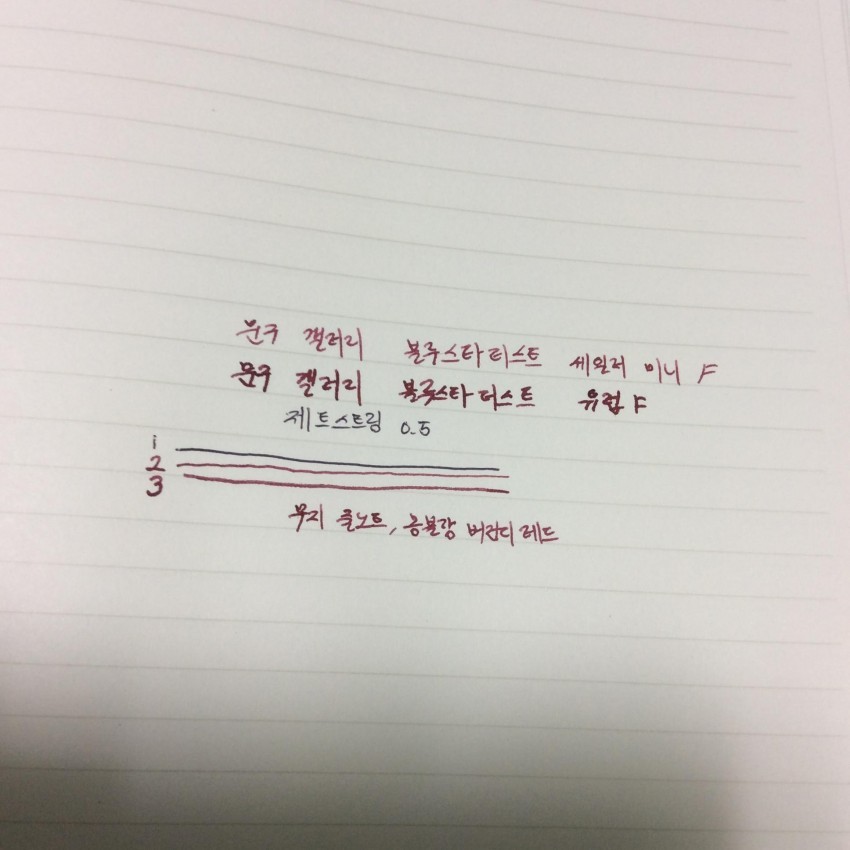 문구 갤러리 블루스타더스트 세일러 미니 F
문구 갤러리 블루스타더스트 유럽 F
제트스트림 0.5
1
2
3
무지 줄노트, 몽블랑 버건디 레드